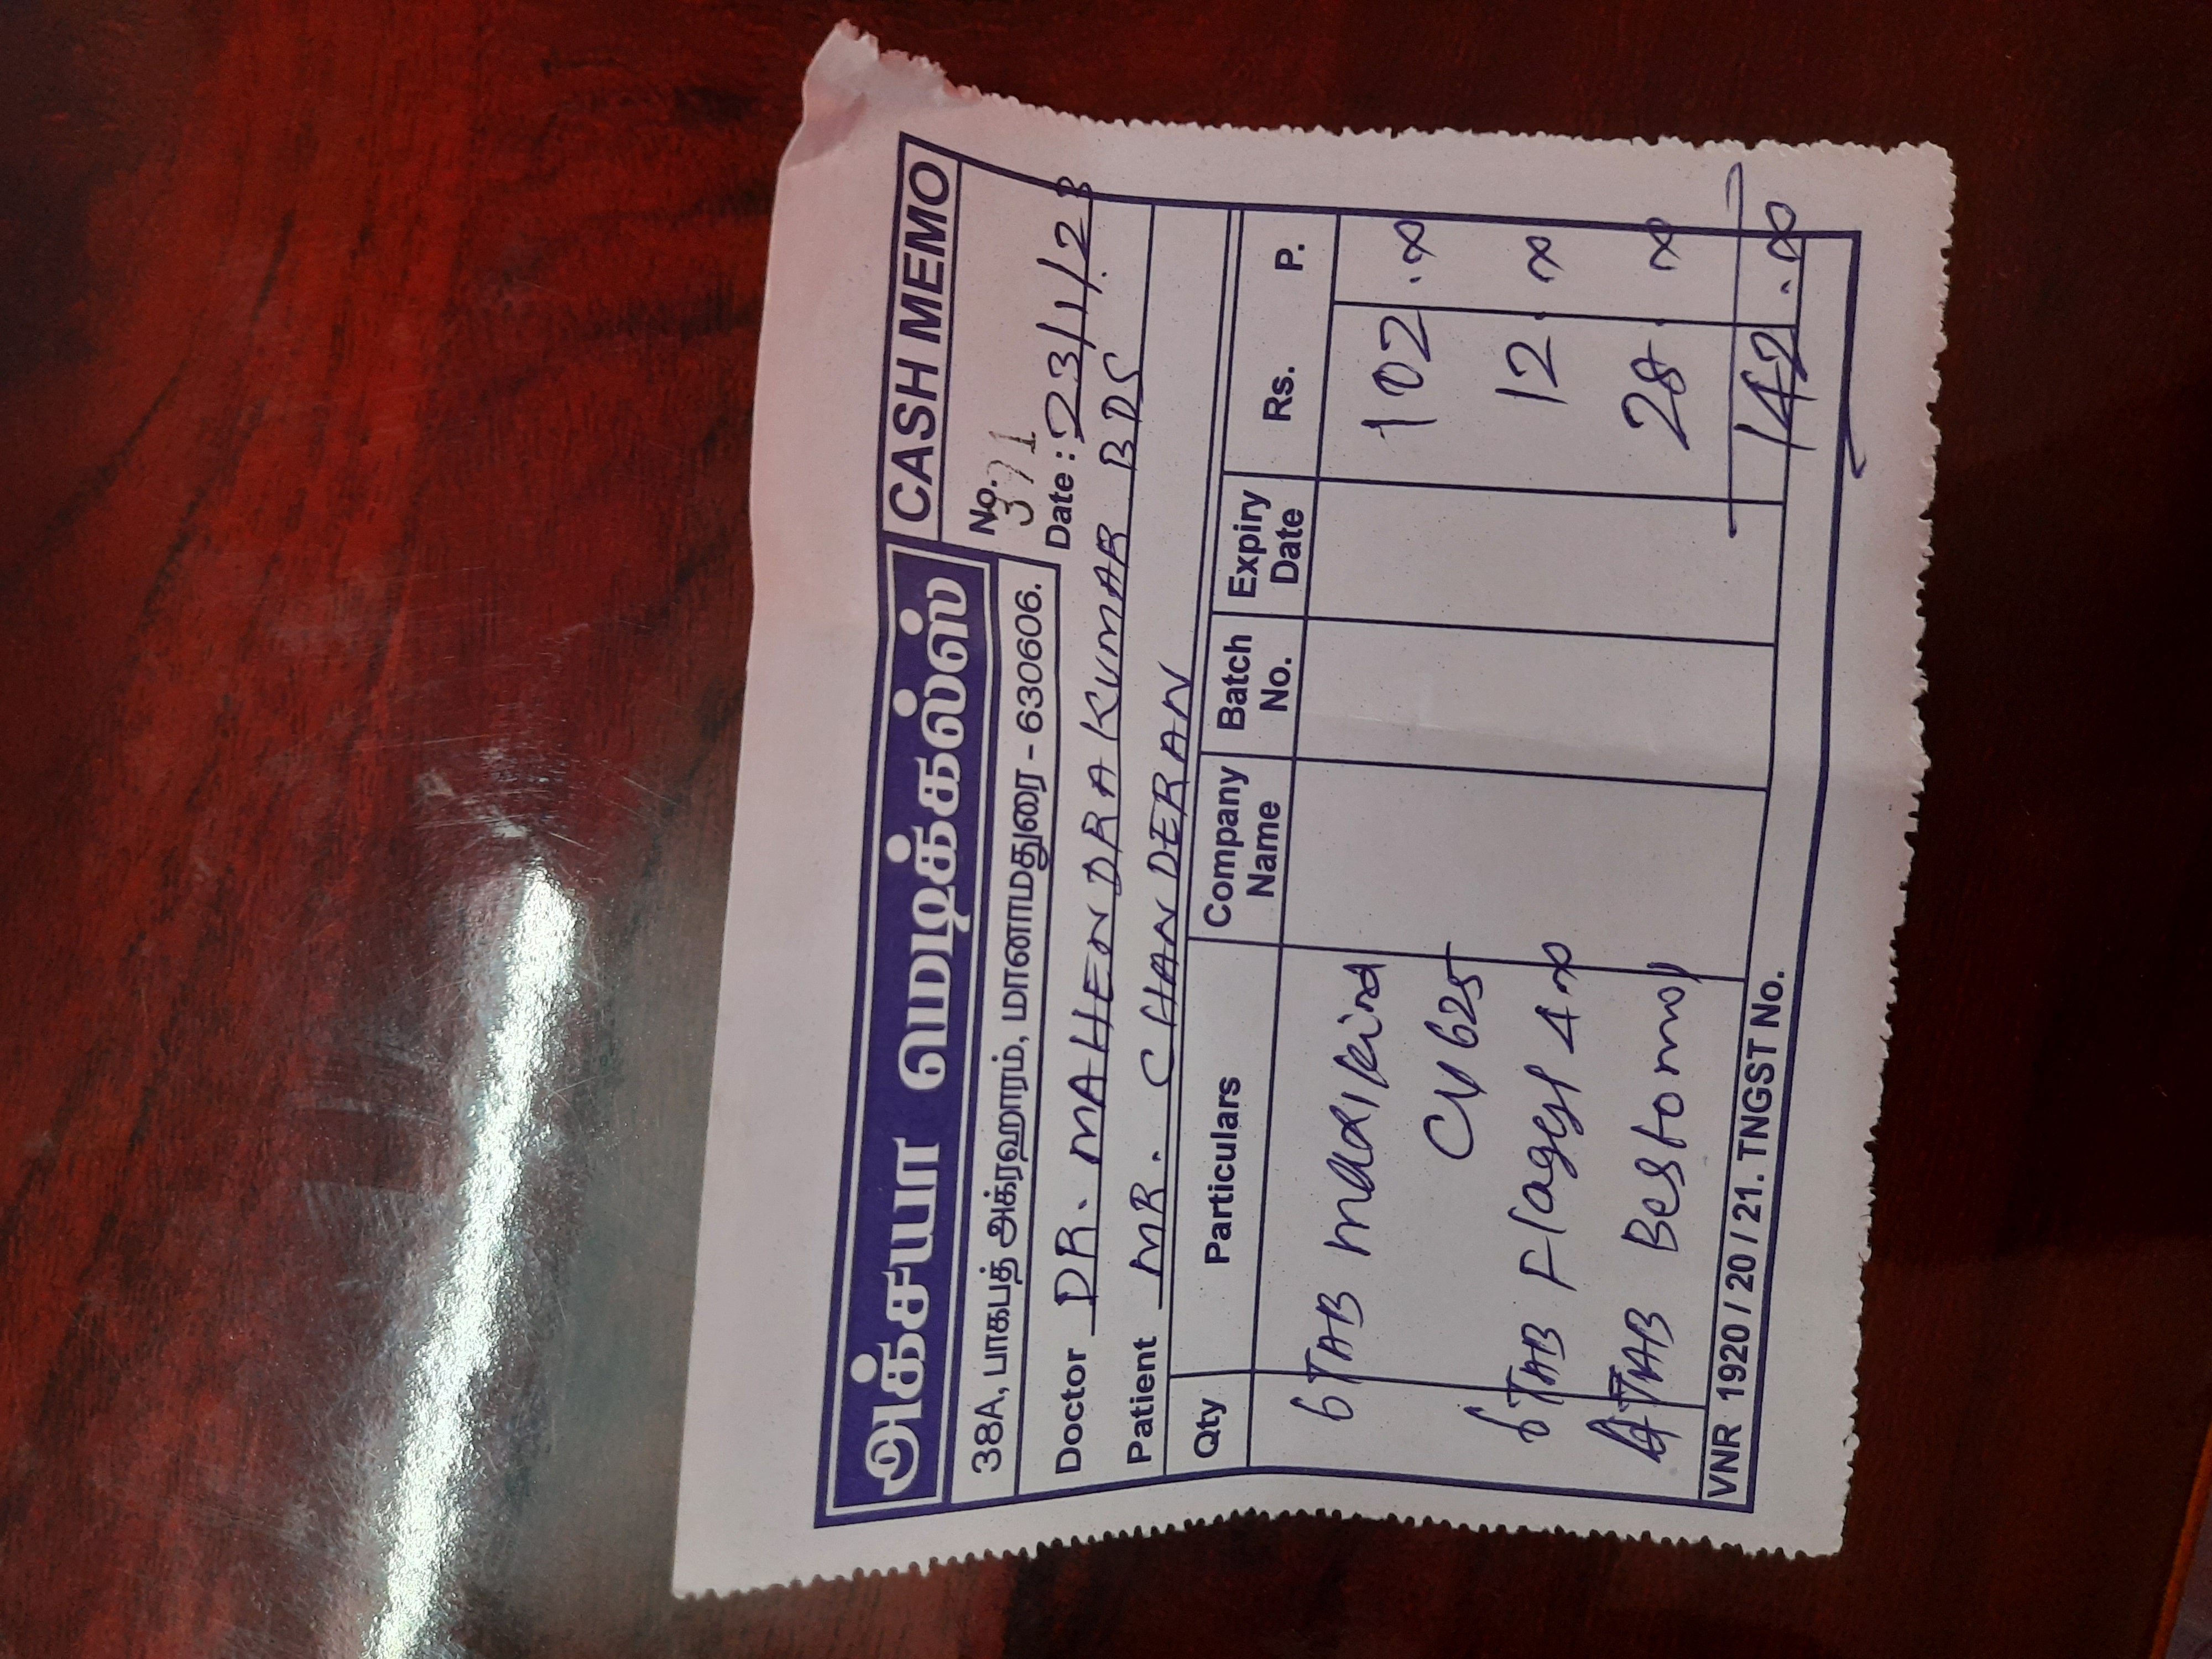 அக்சயா மெடிக்கல்ஸ்
CASH MEMO
38A, பாகபத் அக்ரஹாரம், மானாமதுரை - 630606.
No. 391
Date : 23/1/23
Doctor DR. MAHENDRAKUMAR BDS
Patient MR. CHANDERAN
Qty Particulars Company Name Batch No. Expiry Date Rs. P.
6 TAB Maxikind 102.00
CV 625
6 TAB Flagyl 400 12.00
TAB Bestomol 28.00
142.00
VNR 1920 / 20 / 21. TNGST No.